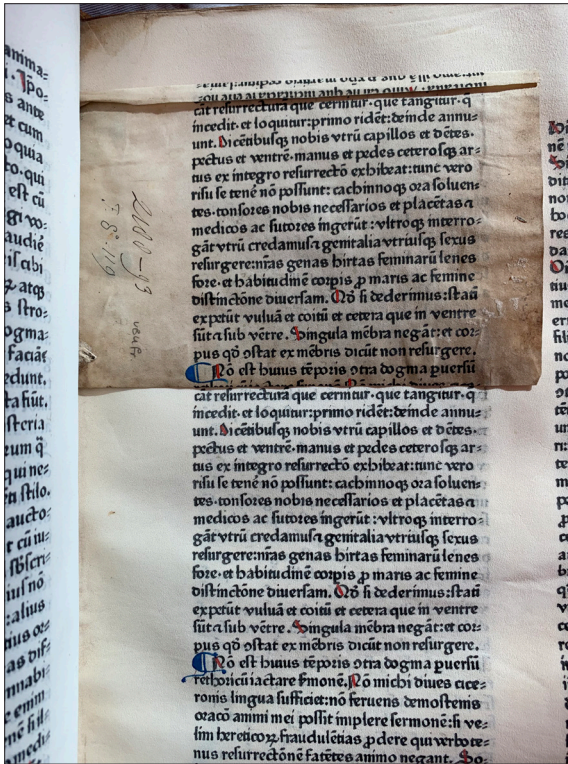 anima=
s ante
et cum
o quia
to. qui
est cū
gi vo=
audiē
iscibi
ꝛ atqꝫ
s stro=
ogma=
faciāt
edunt.
ta fiūt.
steria
rum q̄
qui ne=
ti stilo.
aucto=
t cū iu=
sb̄scri=
ius nō
:alius
tius oꝛ=
as dif=
mnabi=
c enim
nē fil=
medi=
cāt resurrecturā que cernitur·que tangitur·q̄
incedit·et loquitur:primo ridēt:deinde annu=
unt. Dicētibusqꝫ nobis vtrū capillos et dētes·
pectus et ventrē·manus et pedes ceterosqꝫ ar=
tus ex integro resurrectō exhibeat:tunc vero
risu se tenē nō possunt: cachinnoqꝫ oꝛa soluen=
tes·tonsores nobis necessarios et placētas ⁊
medicos ac sutores ingerūt :vltroqꝫ interro=
gāt vtrū credamus ⁊ genitalia vtriusqꝫ sexus
resurgere:nr̄as genas hirtas feminarū lenes
fore·et habitudinē coꝛpis ꝓ maris ac femine
distinctōne diuersam. Qd̄ si dederimus:statī
expetūt vuluā et coitū et cetera que in ventre
sūt ⁊ sub vētre. Singula mēbra negāt:et coꝛ=
pus qd̄ ꝯstat ex mēbris dicūt non resurgere.
Nō est huius tēporis ꝯtra dogma ꝑuersū
cāt resurrecturā que cernitur·que tangitur·q̄
incedit·et loquitur:primo ridēt:deinde annu=
unt. Dicētibusqꝫ nobis vtrū capillos et dētes·
pectus et ventrē·manus et pedes ceterosqꝫ ar=
tus ex integro resurrectō exhibeat:tunc vero
risu se tenē nō possunt: cachinnoqꝫ oꝛa soluen=
tes·tonsores nobis necessarios et placētas ⁊
medicos ac sutores ingerūt :vltroqꝫ interro=
gāt vtrū credamus ⁊ genitalia vtriusqꝫ sexus
resurgere:nr̄as genas hirtas feminarū lenes
fore·et habitudinē coꝛpis ꝓ maris ac femine
distinctōne diuersam. Qd̄ si dederimus:statī
expetūt vuluā et coitū et cetera que in ventre
sūt ⁊ sub vētre. Singula mēbra negāt:et coꝛ=
pus qd̄ ꝯstat ex mēbris dicūt non resurgere.
Nō est huius tēporis ꝯtra dogma ꝑuersū
rethoricū iactare ẜmonē. Nō michi diues cice=
ronis lingua sufficiet:nō feruens demostenis
oracō animi mei possit implere sermonē:si ve=
lim hereticoꝝ fraudulētias ꝓdere qui verbote=
nus resurrectōnē fatētes animo negant. So=